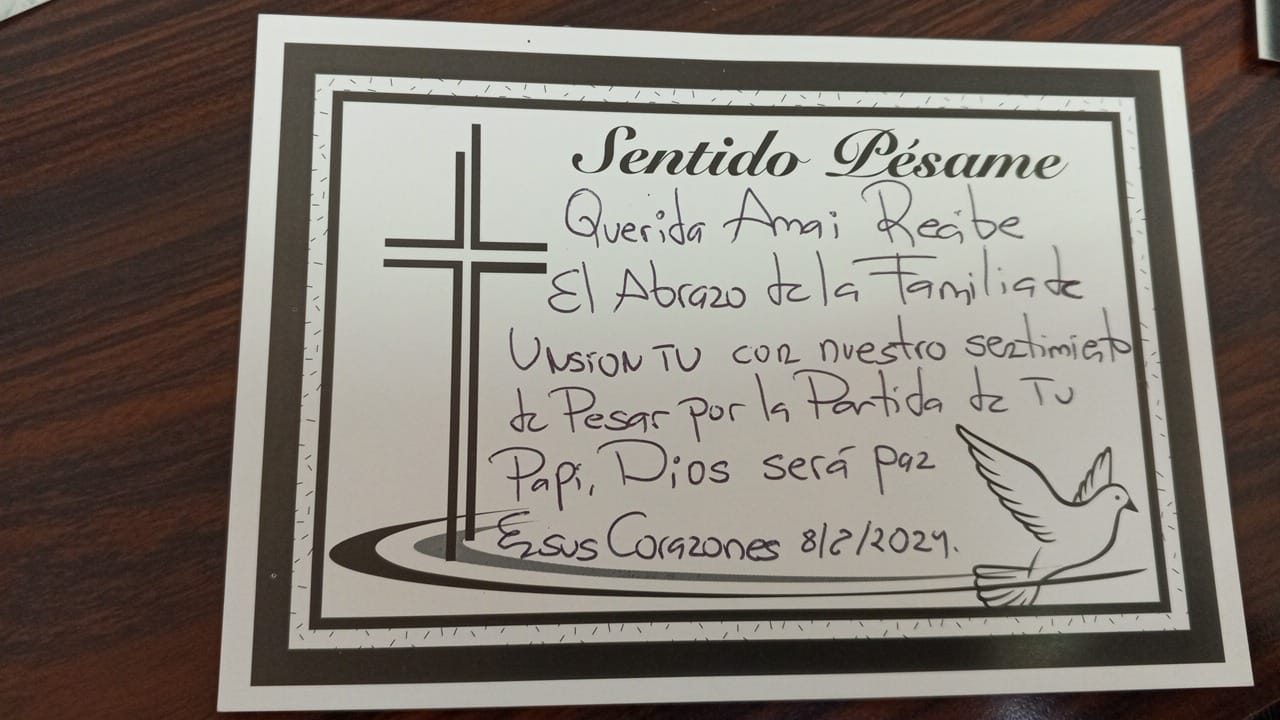 Sentido Pésame
Querida Amai Recibe
El Abrazo de la Familia de
UNSION TV con nuestro sentimiento
de Pesar por la Partida de Tu
Papi, Dios será paz
En sus Corazones 8/2/2024.